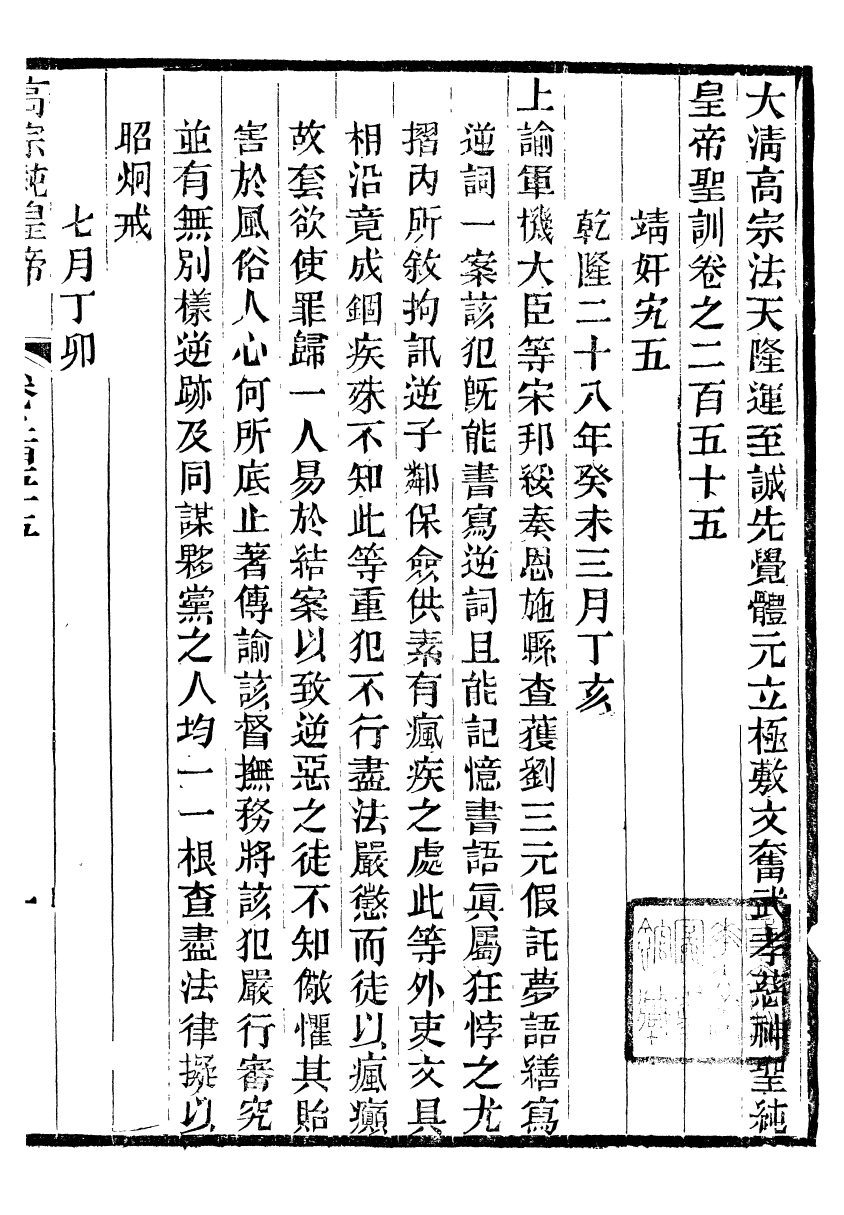 大淸高宗法天隆運至誠先覺體元立極敷文奮武孝慈神聖純
皇帝聖訓卷之二百五十五
靖奸宄五
乾隆二十八年癸未三月丁亥
上諭軍機大臣等宋邦綏奏恩施縣查獲劉三元假託夢語繕寫
逆詞一案該犯旣能書寫逆詞且能記憶書語眞屬狂悖之尤
摺內所敘拘訊逆子鄰保僉供素有瘋疾之處此等外吏文具
相沿竟成錮疾殊不知此等重犯不行盡法嚴懲而徒以瘋癲
故套欲使罪歸一人易於結案以致逆惡之徒不知儆懼其貽
害於風俗人心何所底止著傳諭該督撫務將該犯嚴行審究
並有無別樣逆跡及同謀夥黨之人均一一根查盡法律擬以
昭炯戒
七月丁卯
高宗純皇帝 卷二百五十五 一